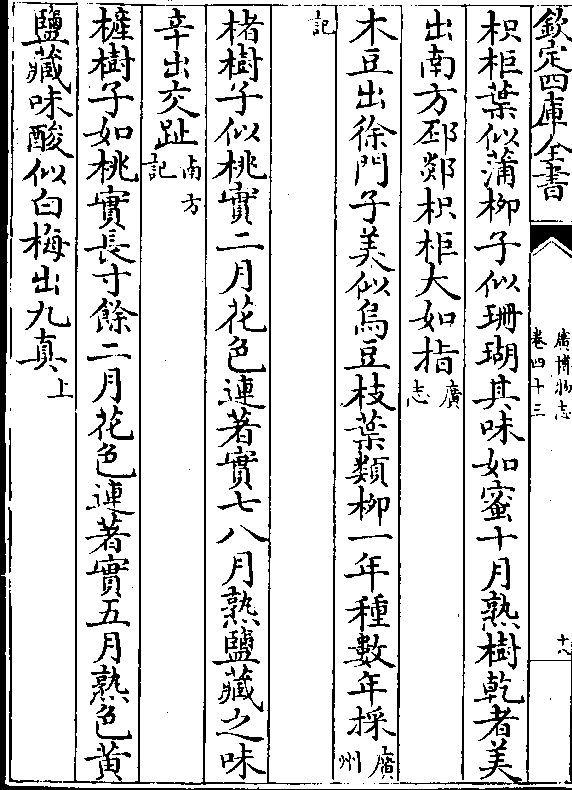 欽定四庫全書
廣博物志
卷四十三
枳柜葉似蒲柳子似珊瑚其味如蜜十月熟樹乾者美
出南方邳郯枳柜大如指廣志
木豆出徐門子美似烏豆枝葉類柳一年種數年採廣州
記
楮樹子似桃實二月花色連著實七八月熟鹽藏之味
辛出交趾南方記
㯆樹子如桃實長寸餘二月花色連著實五月熟色黄
鹽藏味酸似白梅出九真上